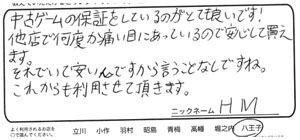 中古ゲームの保証をしているのがとても良いです!
他店で何度か痛い目にあっているので安心して買え
ます。
それでいて安いんですから言うことなしですね。
これからも利用させて頂きます。
ニックネーム HM
よく利用されるお店を
立川 小作 羽村 昭島 青梅 高幡 堀之内 八王子